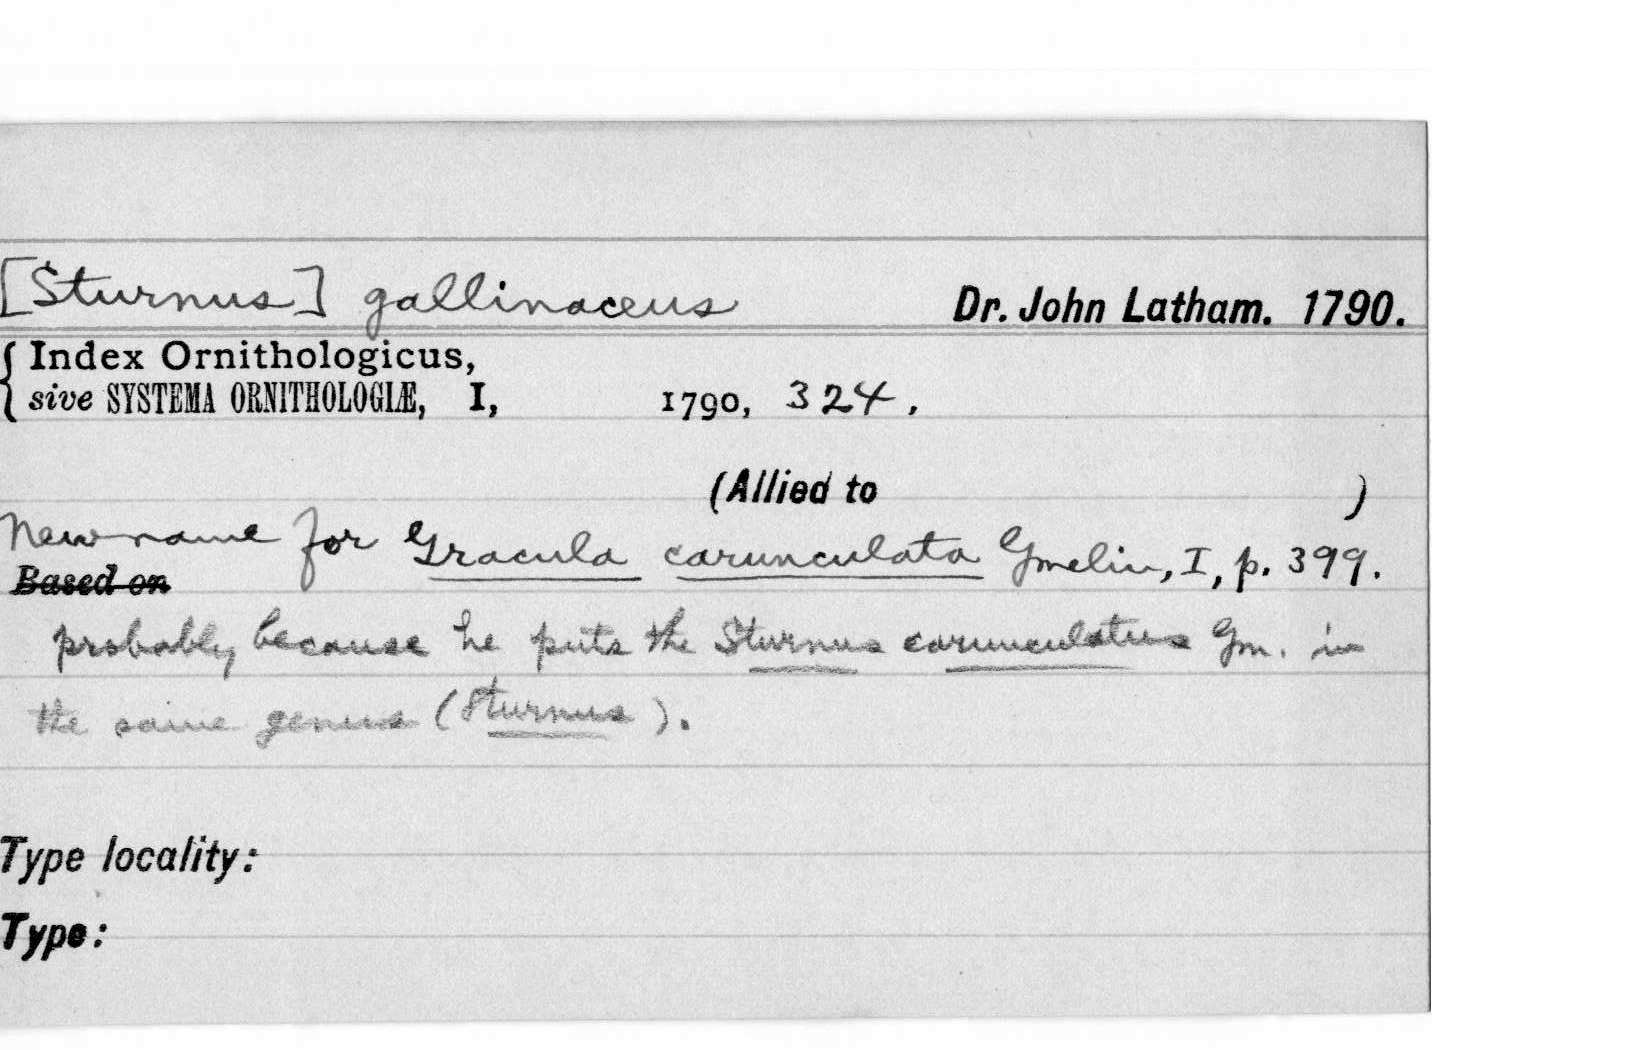 [Sturnus] gallinaceus Dr. John Latham. 1790.
Index Ornithologicus,
sive SYSTEMA ORNITHOLOGIÆ, I, 1790, 324.
(Allied to )
New name for Gracula carunculata Gmelin, I, p. 399.
Based on
probably because he puts the Sturnus carunculatus Gm. in
the same genus (Sturnus).
Type locality:
Type: